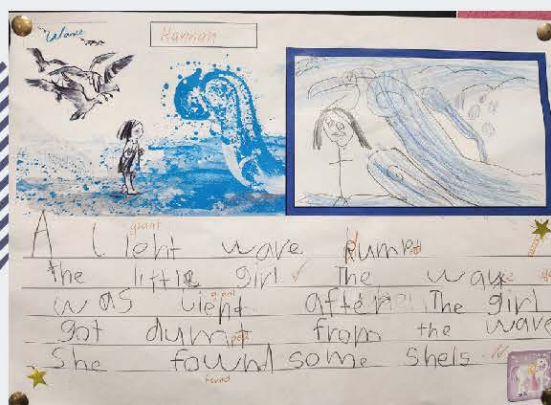 Wave
Hannah
giant
A wave dumpt
the little girl The wave
was after The girl
got dumt from the wave
She fownd some shels
found